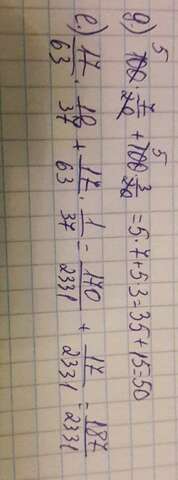 5 5
д) 100 · 7/20 + 100 · 3/20 = 5 · 7 + 5 · 3 = 35 + 15 = 50
е) 17/63 · 10/37 + 17/63 · 1/37 = 170/2331 + 17/2331 = 187/2331